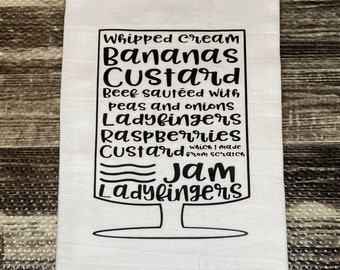 Whipped Cream
Bananas
Custard
Beef sautéed with
peas and onions
Ladyfingers
Raspberries
Custard which I made
from scratch
Jam
Ladyfingers